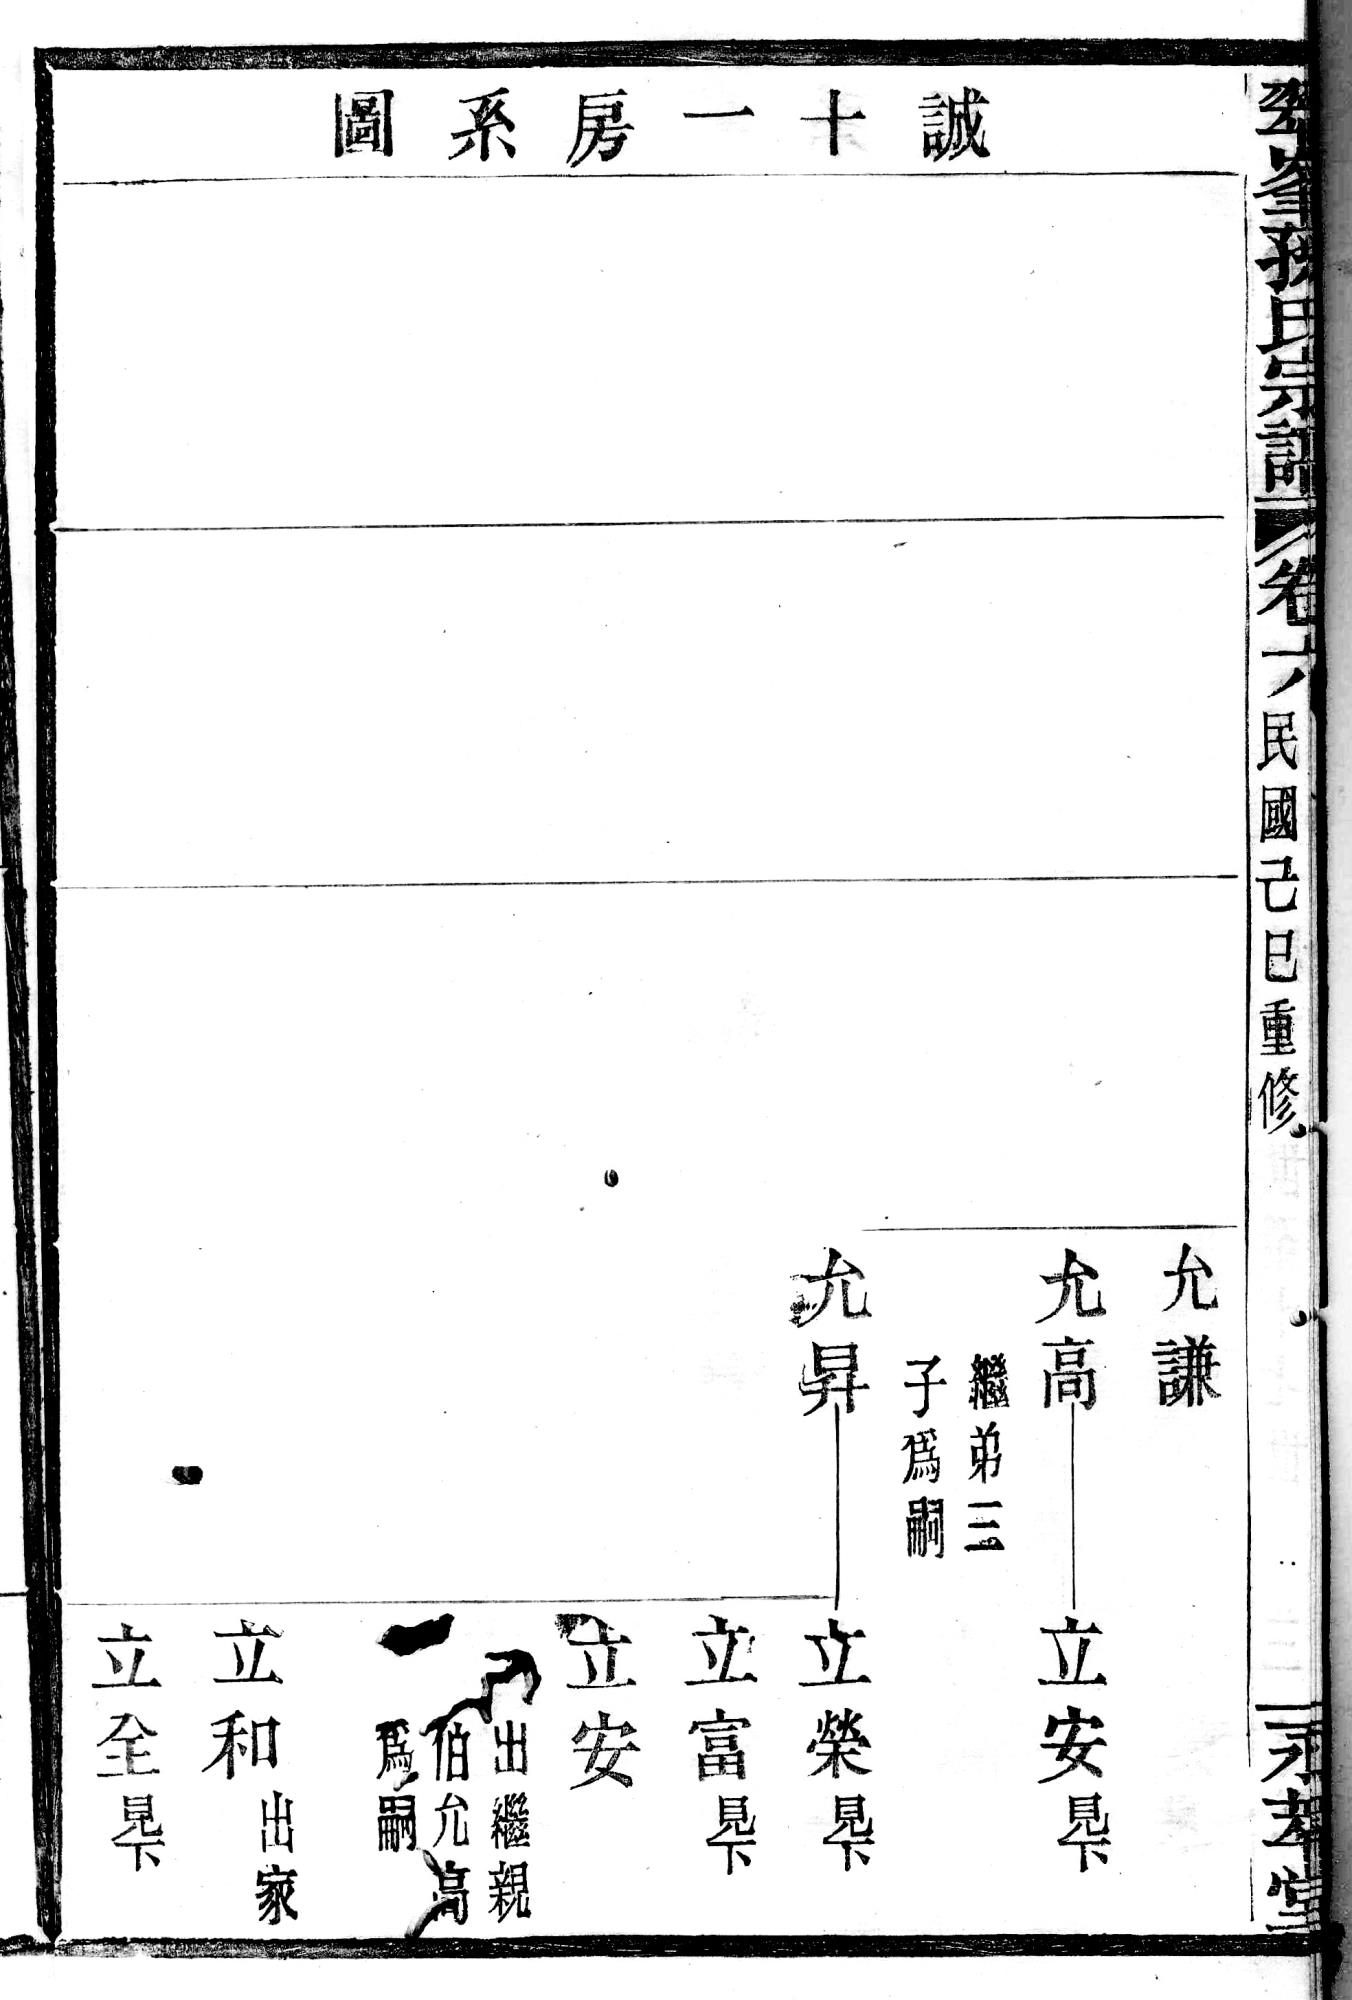 誠十一房系圖
孫氏宗譜
卷六
民國己巳重修
允謙
允高
繼弟三
子爲嗣
立安見下
允昇
立榮見下
立富見下
立安
出繼親
伯允高
爲嗣
立和出家
立全見下